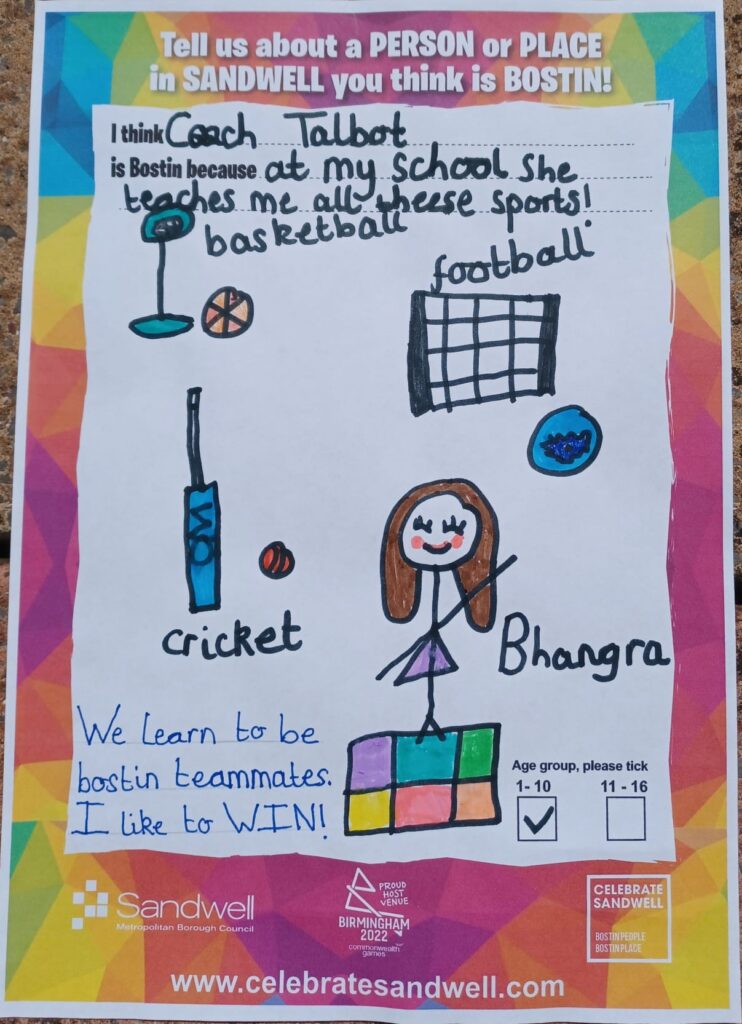 Tell us about a PERSON or PLACE
in SANDWELL you think is BOSTIN!
I think Coach Talbot
is Bostin because at my school she
teaches me all theese sports!
basketball
football
GM
cricket
Bhangra
We learn to be
bostin teammates.
I like to WIN!
Age group, please tick
1-10
11-16
Sandwell
Metropolitan Borough Council
PROUD
HOST
VENUE
BIRMINGHAM
2022
commonwealth
games
CELEBRATE
SANDWELL
BOSTIN PEOPLE
BOSTIN PLACE
www.celebratesandwell.com